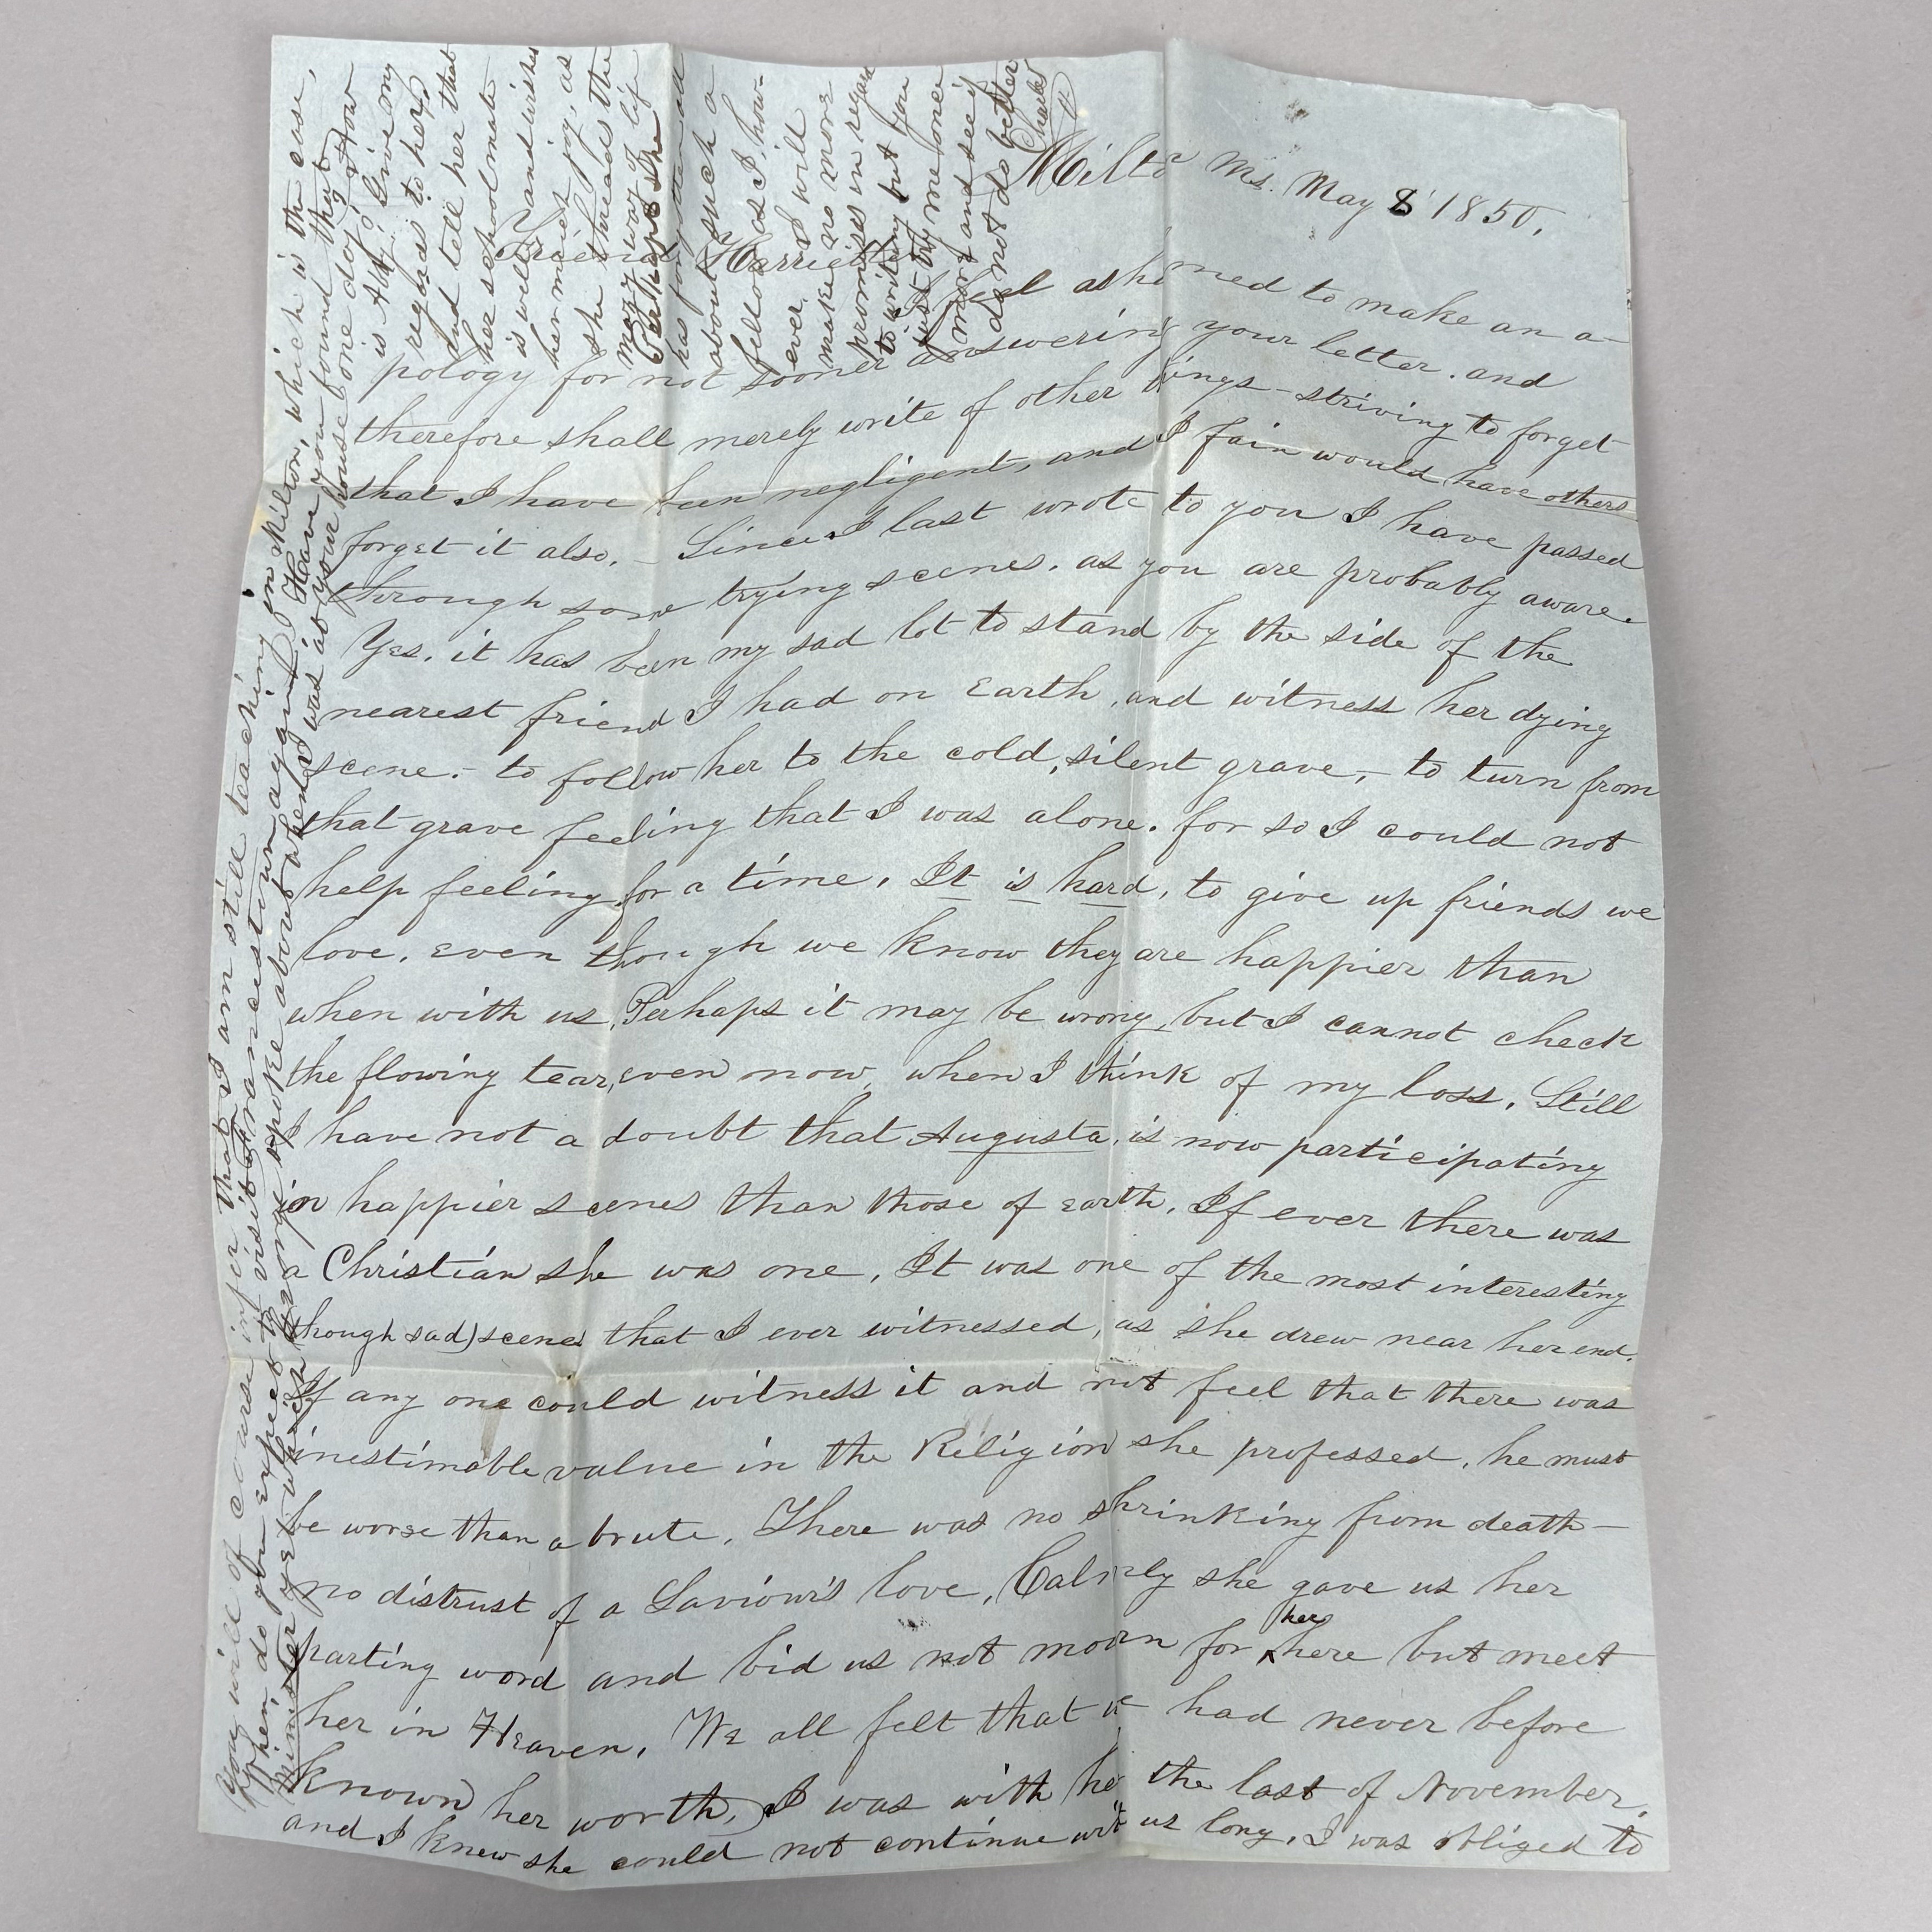 Milton Ms. May 8 1850.
Friend Harriet
I feel ashamed to make an a-
pology for not sooner answering your letter. and
therefore shall merely write of other things - striving to forget
that I have been negligent, and I fain would have others
forget it also. - Since I last wrote to you I have passed
through some trying scenes. as you are probably aware.
Yes. it has been my sad lot to stand by the side of the
nearest friend I had on Earth, and witness her dying
scene. - to follow her to the cold, silent grave, - to turn from
that grave feeling that I was alone. for so I could not
help feeling for a time. It is hard, to give up friends we
love. even though we know they are happier than
when with us. Perhaps it may be wrong, but I cannot check
the flowing tear, even now, when I think of my loss. Still
I have not a doubt that Augusta, is now participating
in happier scenes than those of earth. If ever there was
a Christian she was one. It was one of the most interesting
though sad) scenes that I ever witnessed, as she drew near her end.
If any one could witness it and not feel that there was
inestimable value in the Religion she professed, he must
be worse than a brute. There was no shrinking from death -
no distrust of a Saviour's love. Calmly she gave us her
parting word and bid us not mourn for her here but meet
her in Heaven. We all felt that we had never before
known her worth. I was with her the last of November.
and I knew she could not continue with us long. I was obliged to
You will of course infer that I am still teaching in Milton, which is the case.
When do you expect to visit Francestown again? Have you found that
minister yet which George spoke about when I was at your house one day? How
is Abby? Give my
regards to her,
and tell her that
her schoolmate
is well, and wishes
her much joy, as
she threads the
mazy way of life
Perhaps she
has forgotten all
about such a
fellow as I, how-
ever. I will
make no more
promises in regard
to writing but you
just try me once
more and see if I
do not do better
Charles